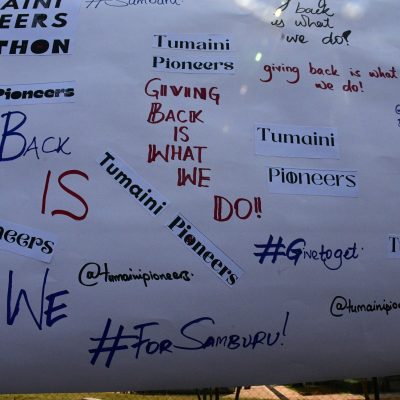 #Samburu
Back
is what
we do!
EERS
THON
Tumaini
Pioneers
giving back is what
we do!
Pioneers
GIVING
BACK
IS
WHAT
WE
DO!!
Back
IS
Tumaini
Pioneers
Tumaini
Pioneers
Pioneers
#Givetoget.
@tumainipioneers.
WE
#FOR SAMBURU!